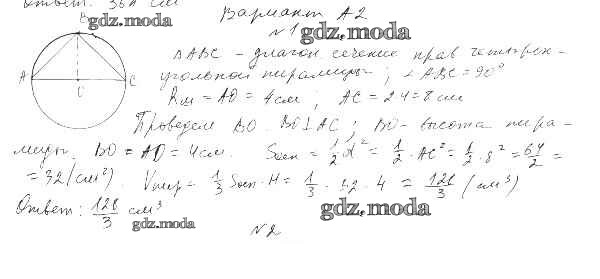 Ответ: 36π см
Вариант А2
gdz.moda
№1
gdz.moda
В
А
О
С
ΔАВС – диагон сечение прав четырех-
угольной пирамиды; ∠АВС = 90°
Rш = АО = 4 см; АС = 2·4 = 8 см
Проведем ВО. ВО⊥АС; ВО – высота пира-
миды. ВО = АО = 4 см. Sосн = 1/2 d² = 1/2 · АС² = 1/2 · 8² = 64/2 =
= 32 (см²). Vпир = 1/3 Sосн · H = 1/3 · 32 · 4 = 128/3 (см³)
Ответ: 128/3 см³
gdz.moda
gdz.moda
№2